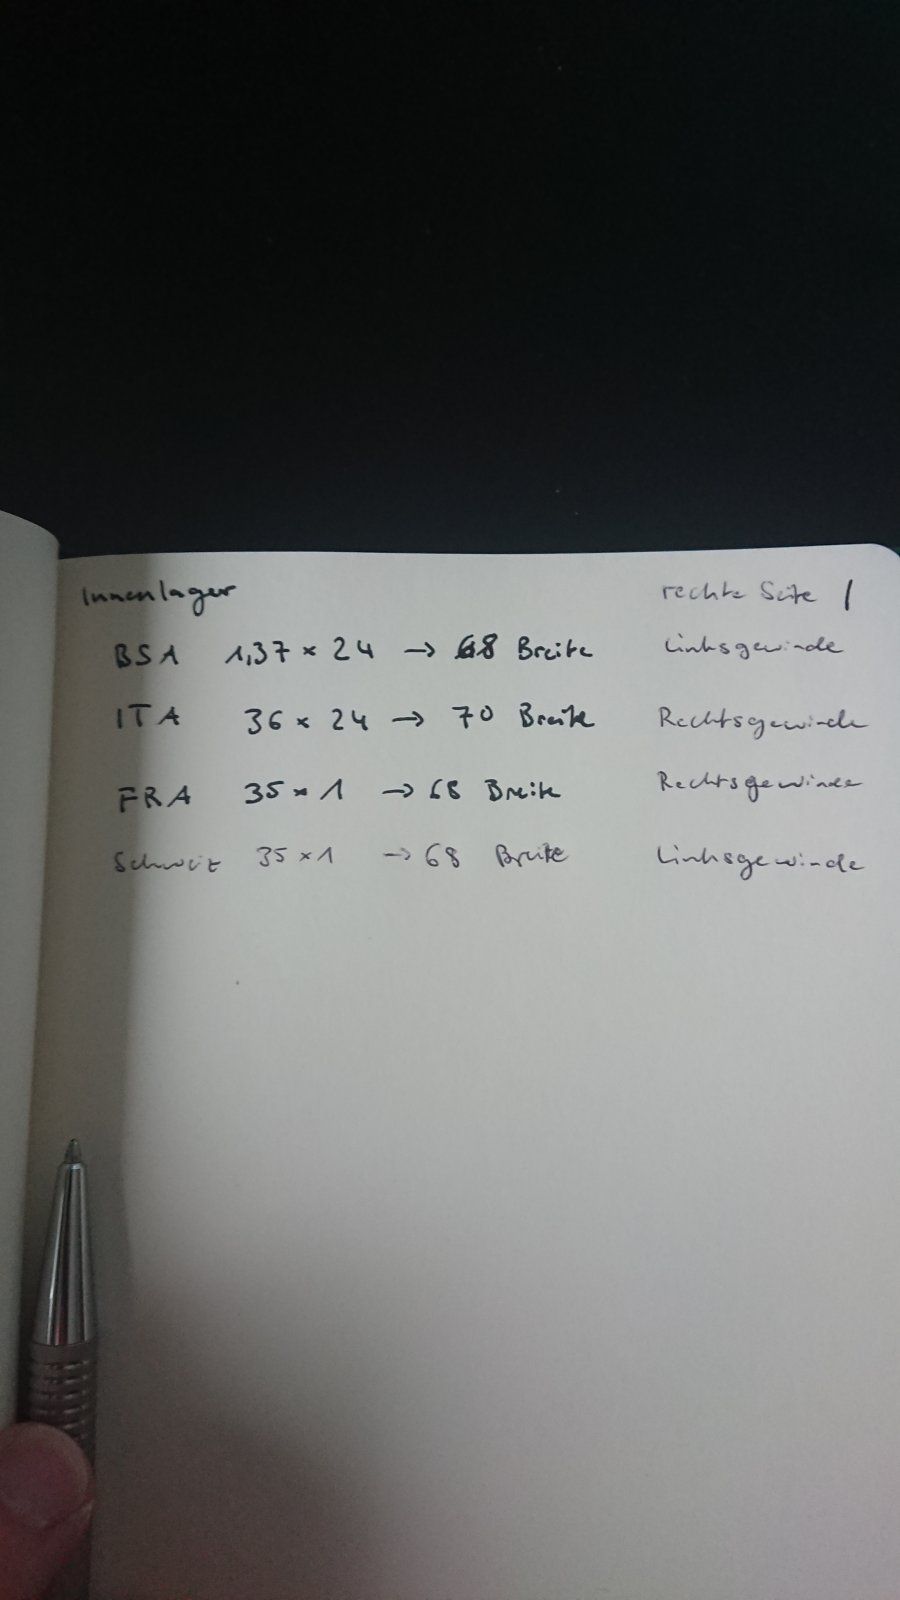 Innenlager rechte Seite /
BSA 1,37 x 24 → 68 Breite Linksgewinde
ITA 36 x 24 → 70 Breite Rechtsgewinde
FRA 35 x 1 → 68 Breite Rechtsgewinde
Schweiz 35 x 1 → 68 Breite Linksgewinde